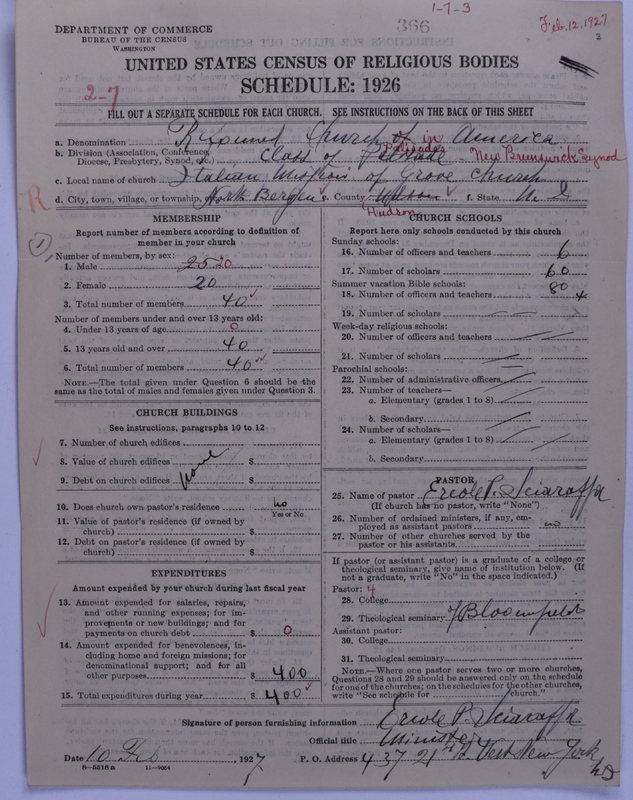 1-7-3
DEPARTMENT OF COMMERCE
BUREAU OF THE CENSUS
WASHINGTON
366
Feb. 12, 1927
3
UNITED STATES CENSUS OF RELIGIOUS BODIES
SCHEDULE: 1926
2-7
FILL OUT A SEPARATE SCHEDULE FOR EACH CHURCH. SEE INSTRUCTIONS ON THE BACK OF THIS SHEET
a. Denomination Reformed Church in America
b. Division (Association, Conference, Diocese, Presbytery, Synod, etc.) Class of Palisades - New Brunswick Synod
c. Local name of church Italian Mission of Grove Church
R
d. City, town, village, or township, North Bergen e. County Hudson f. State N. J.
MEMBERSHIP
Report number of members according to definition of member in your church
1
Number of members, by sex:
1. Male 25 20
2. Female 20
3. Total number of members 40
Number of members under and over 13 years old:
4. Under 13 years of age 0
5. 13 years old and over 40
6. Total number of members 40
NOTE.—The total given under Question 6 should be the same as the total of males and females given under Question 3.
CHURCH BUILDINGS
See instructions, paragraphs 10 to 12
7. Number of church edifices
8. Value of church edifices $
9. Debt on church edifices none $
10. Does church own pastor's residence? no
Yes or No
11. Value of pastor's residence (if owned by church) $
12. Debt on pastor's residence (if owned by church) $
EXPENDITURES
Amount expended by your church during last fiscal year
13. Amount expended for salaries, repairs, and other running expenses; for improvements or new buildings; and for payments on church debt $ 0
14. Amount expended for benevolences, including home and foreign missions; for denominational support; and for all other purposes $ 400
15. Total expenditures during year $ 400
CHURCH SCHOOLS
Report here only schools conducted by this church
Sunday schools:
16. Number of officers and teachers 6
17. Number of scholars 60
Summer vacation Bible schools: 80
18. Number of officers and teachers 4
19. Number of scholars
Week-day religious schools:
20. Number of officers and teachers
21. Number of scholars
Parochial schools:
22. Number of administrative officers
23. Number of teachers—
a. Elementary (grades 1 to 8)
b. Secondary
24. Number of scholars—
a. Elementary (grades 1 to 8)
b. Secondary
PASTOR
25. Name of pastor Ercole P. Sciaroffa
(If church has no pastor, write "None")
26. Number of ordained ministers, if any, employed as assistant pastors no
27. Number of other churches served by the pastor or his assistants
If pastor (or assistant pastor) is a graduate of a college or theological seminary, give name of institution below. (If not a graduate, write "No" in the space indicated.)
Pastor: 4
28. College
29. Theological seminary Bloomfield
Assistant pastor:
30. College
31. Theological seminary
NOTE.—Where one pastor serves two or more churches, Questions 28 and 29 should be answered only on the schedule for one of the churches; on the schedules for the other churches, write "See schedule for church."
Signature of person furnishing information Ercole P. Sciaroffa
Official title Minister
Date 10 Feb, 1927 P. O. Address 437 21st St. West New York NJ
8-5518a 11-9264